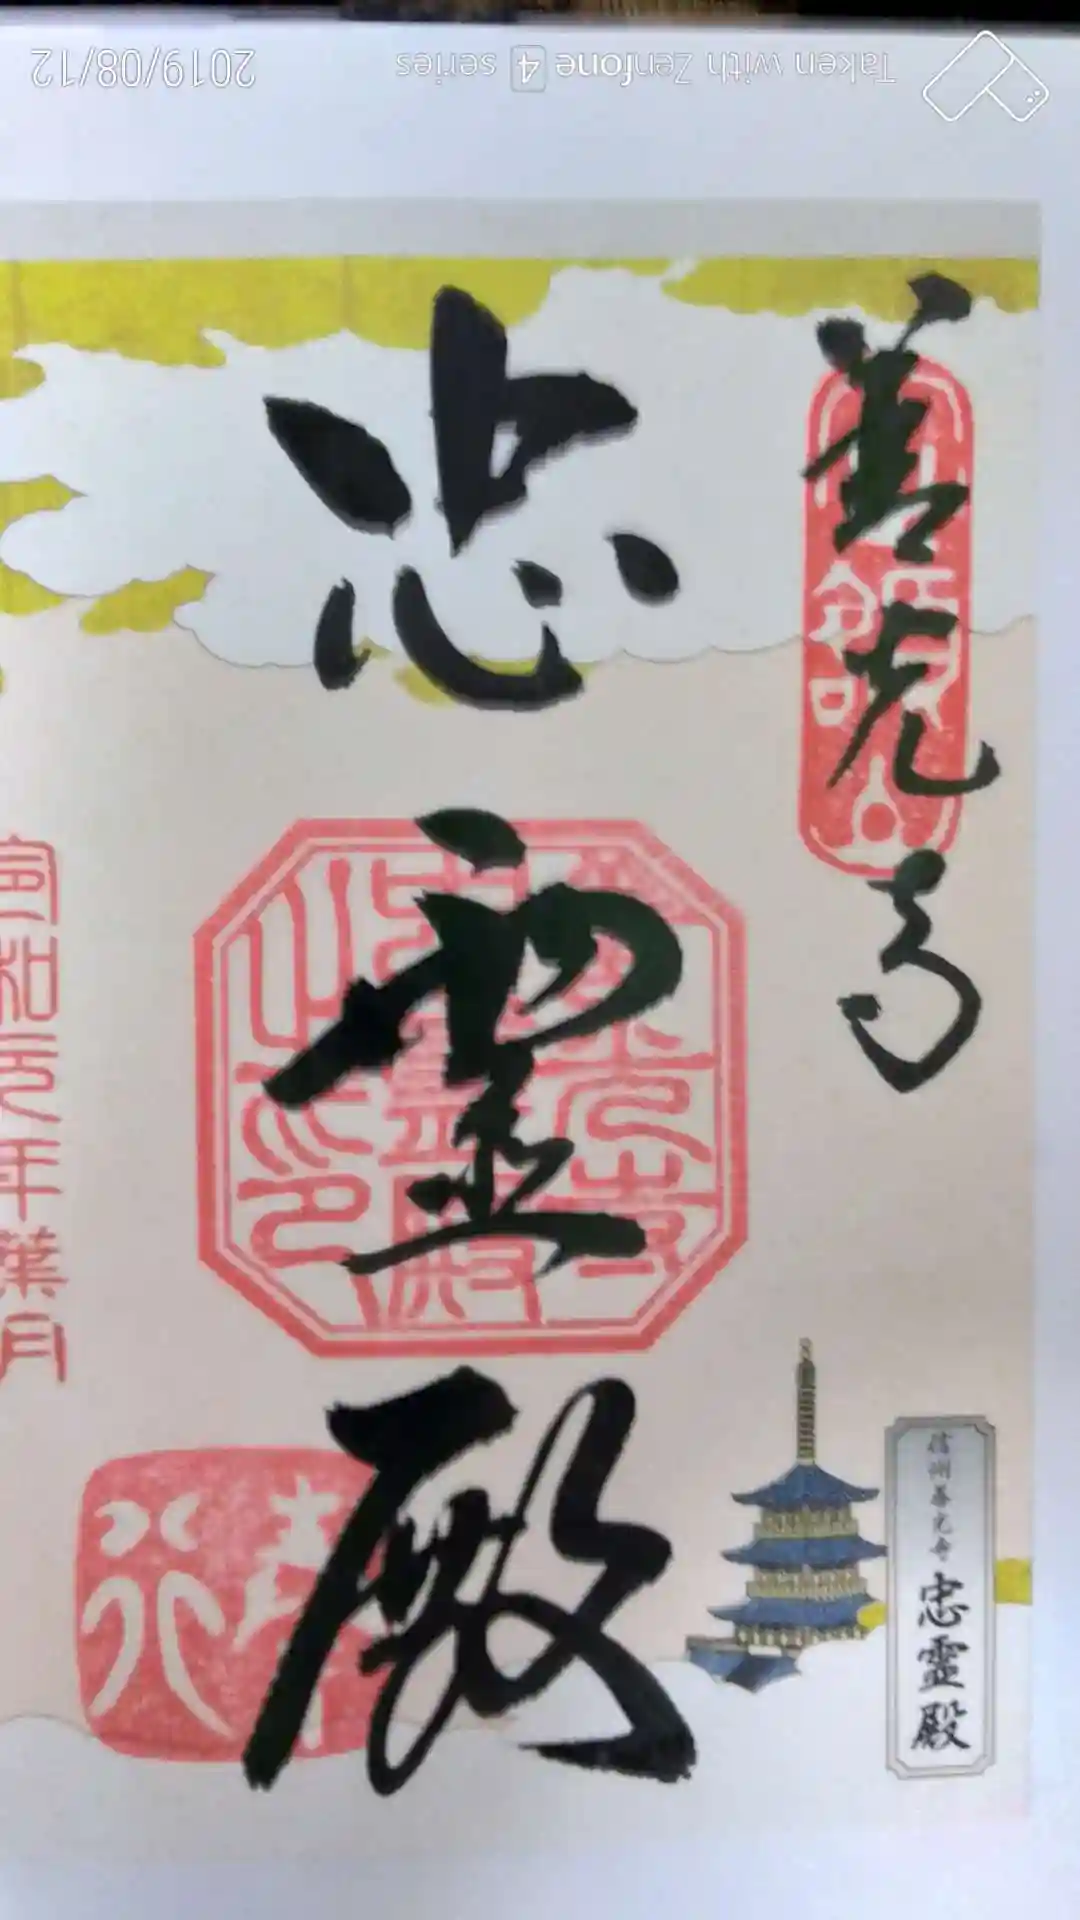 善光寺
忠霊殿
信州善光寺 忠霊殿
令和元年葉月
Taken with Zenfone 4 series
2019/08/12